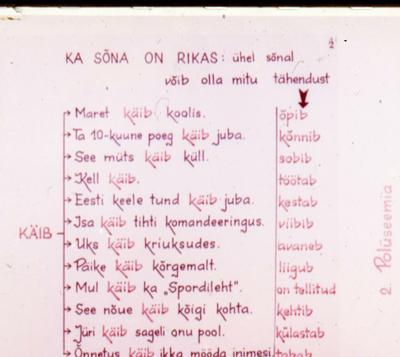 4/2
KA SÕNA ON RIKAS: ühel sõnal
võib olla mitu tähendust
KÄIB
Maret käib koolis. õpib
Ta 10-kuune poeg käib juba. kõnnib
See müts käib küll. sobib
Kell käib. töötab
Eesti keele tund käib juba. kestab
Isa käib tihti komandeeringus. viibib
Uks käib kriuksudes. avaneb
Päike käib kõrgemalt. liigub
Mul käib ka „Spordileht". on tellitud
See nõue käib kõigi kohta. kehtib
Jüri käib sageli onu pool. külastab
Õnnetus käib ikka mööda inimesi. tabab
2. Polüseemia